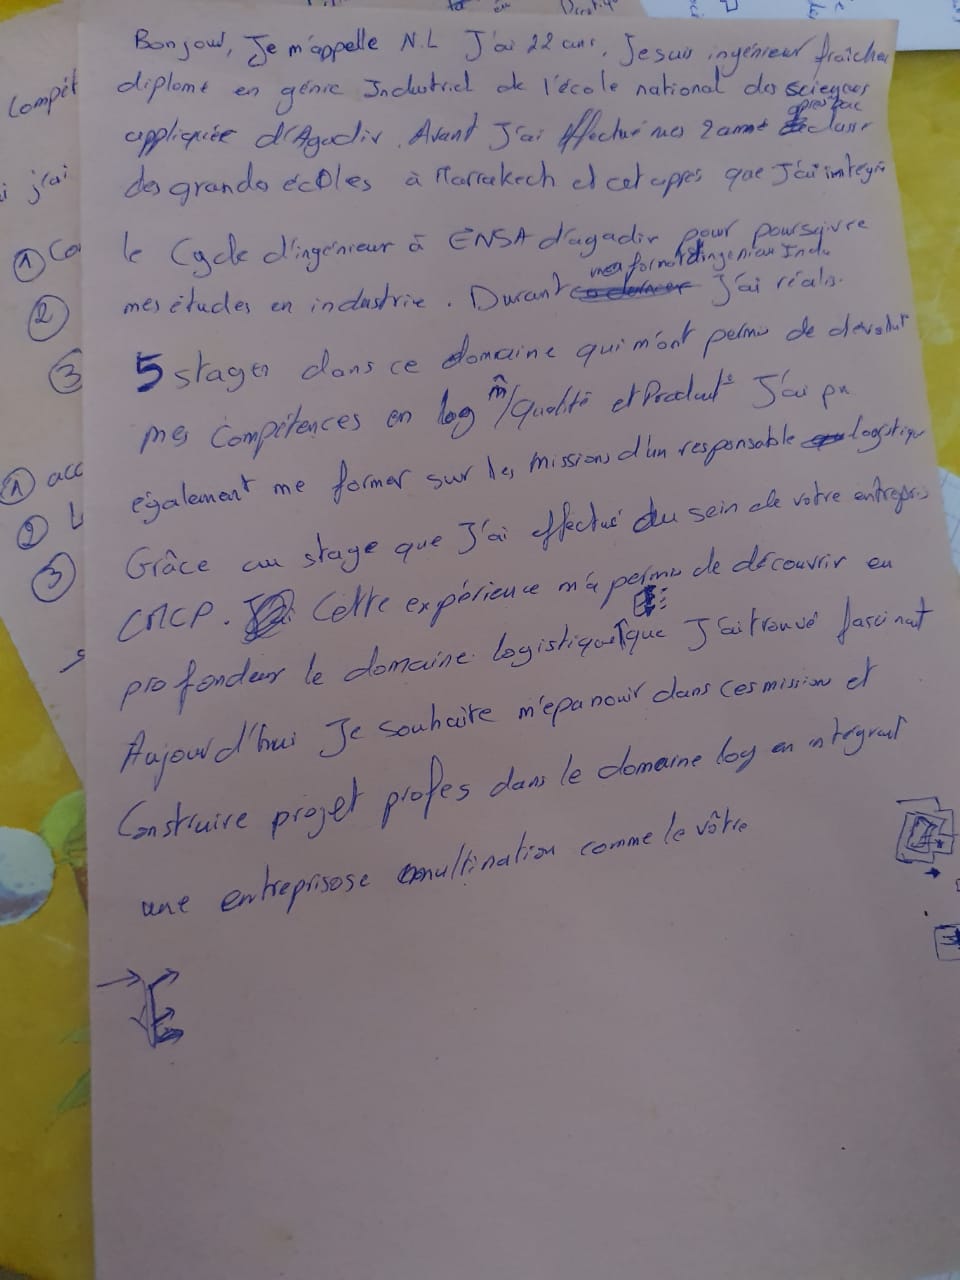 Bonjour, Je m'appelle N.L J'ai 22 ans. Je suis ingénieur fraîche
diplome en génie Industriel de l'école national des sciences
après bac
appliquée d'Agadir. Avant J'ai effectué mes 2 ans classe
des grandes écoles à Marrakech et cet apres que J'ai intégré
le Cycle d'ingénieur à ENSA d'agadir pour poursuivre
mes études en industrie. Durant mes format d'ingenieur Indu J'ai réalis.
5 stages dans ce domaine qui m'ont permis de
mes compétences en log /Qualité et Product° J'ai pu
également me former sur les missions d'un responsable logistique
Grâce au stage que J'ai effectué du sein de votre entrepris
CMCP. Cette expérience m'a permis de découvrir en
profondeur le domaine logistique que J'ai trouvé fascinat
Aujourd'hui Je souhaite m'épanouir dans ces mission et
Construire projet profes dans le domaine log en intégrant
une entreprisose multination comme le vôtre
Compét
i j'ai
① Co
②
③
① acc
② L
③